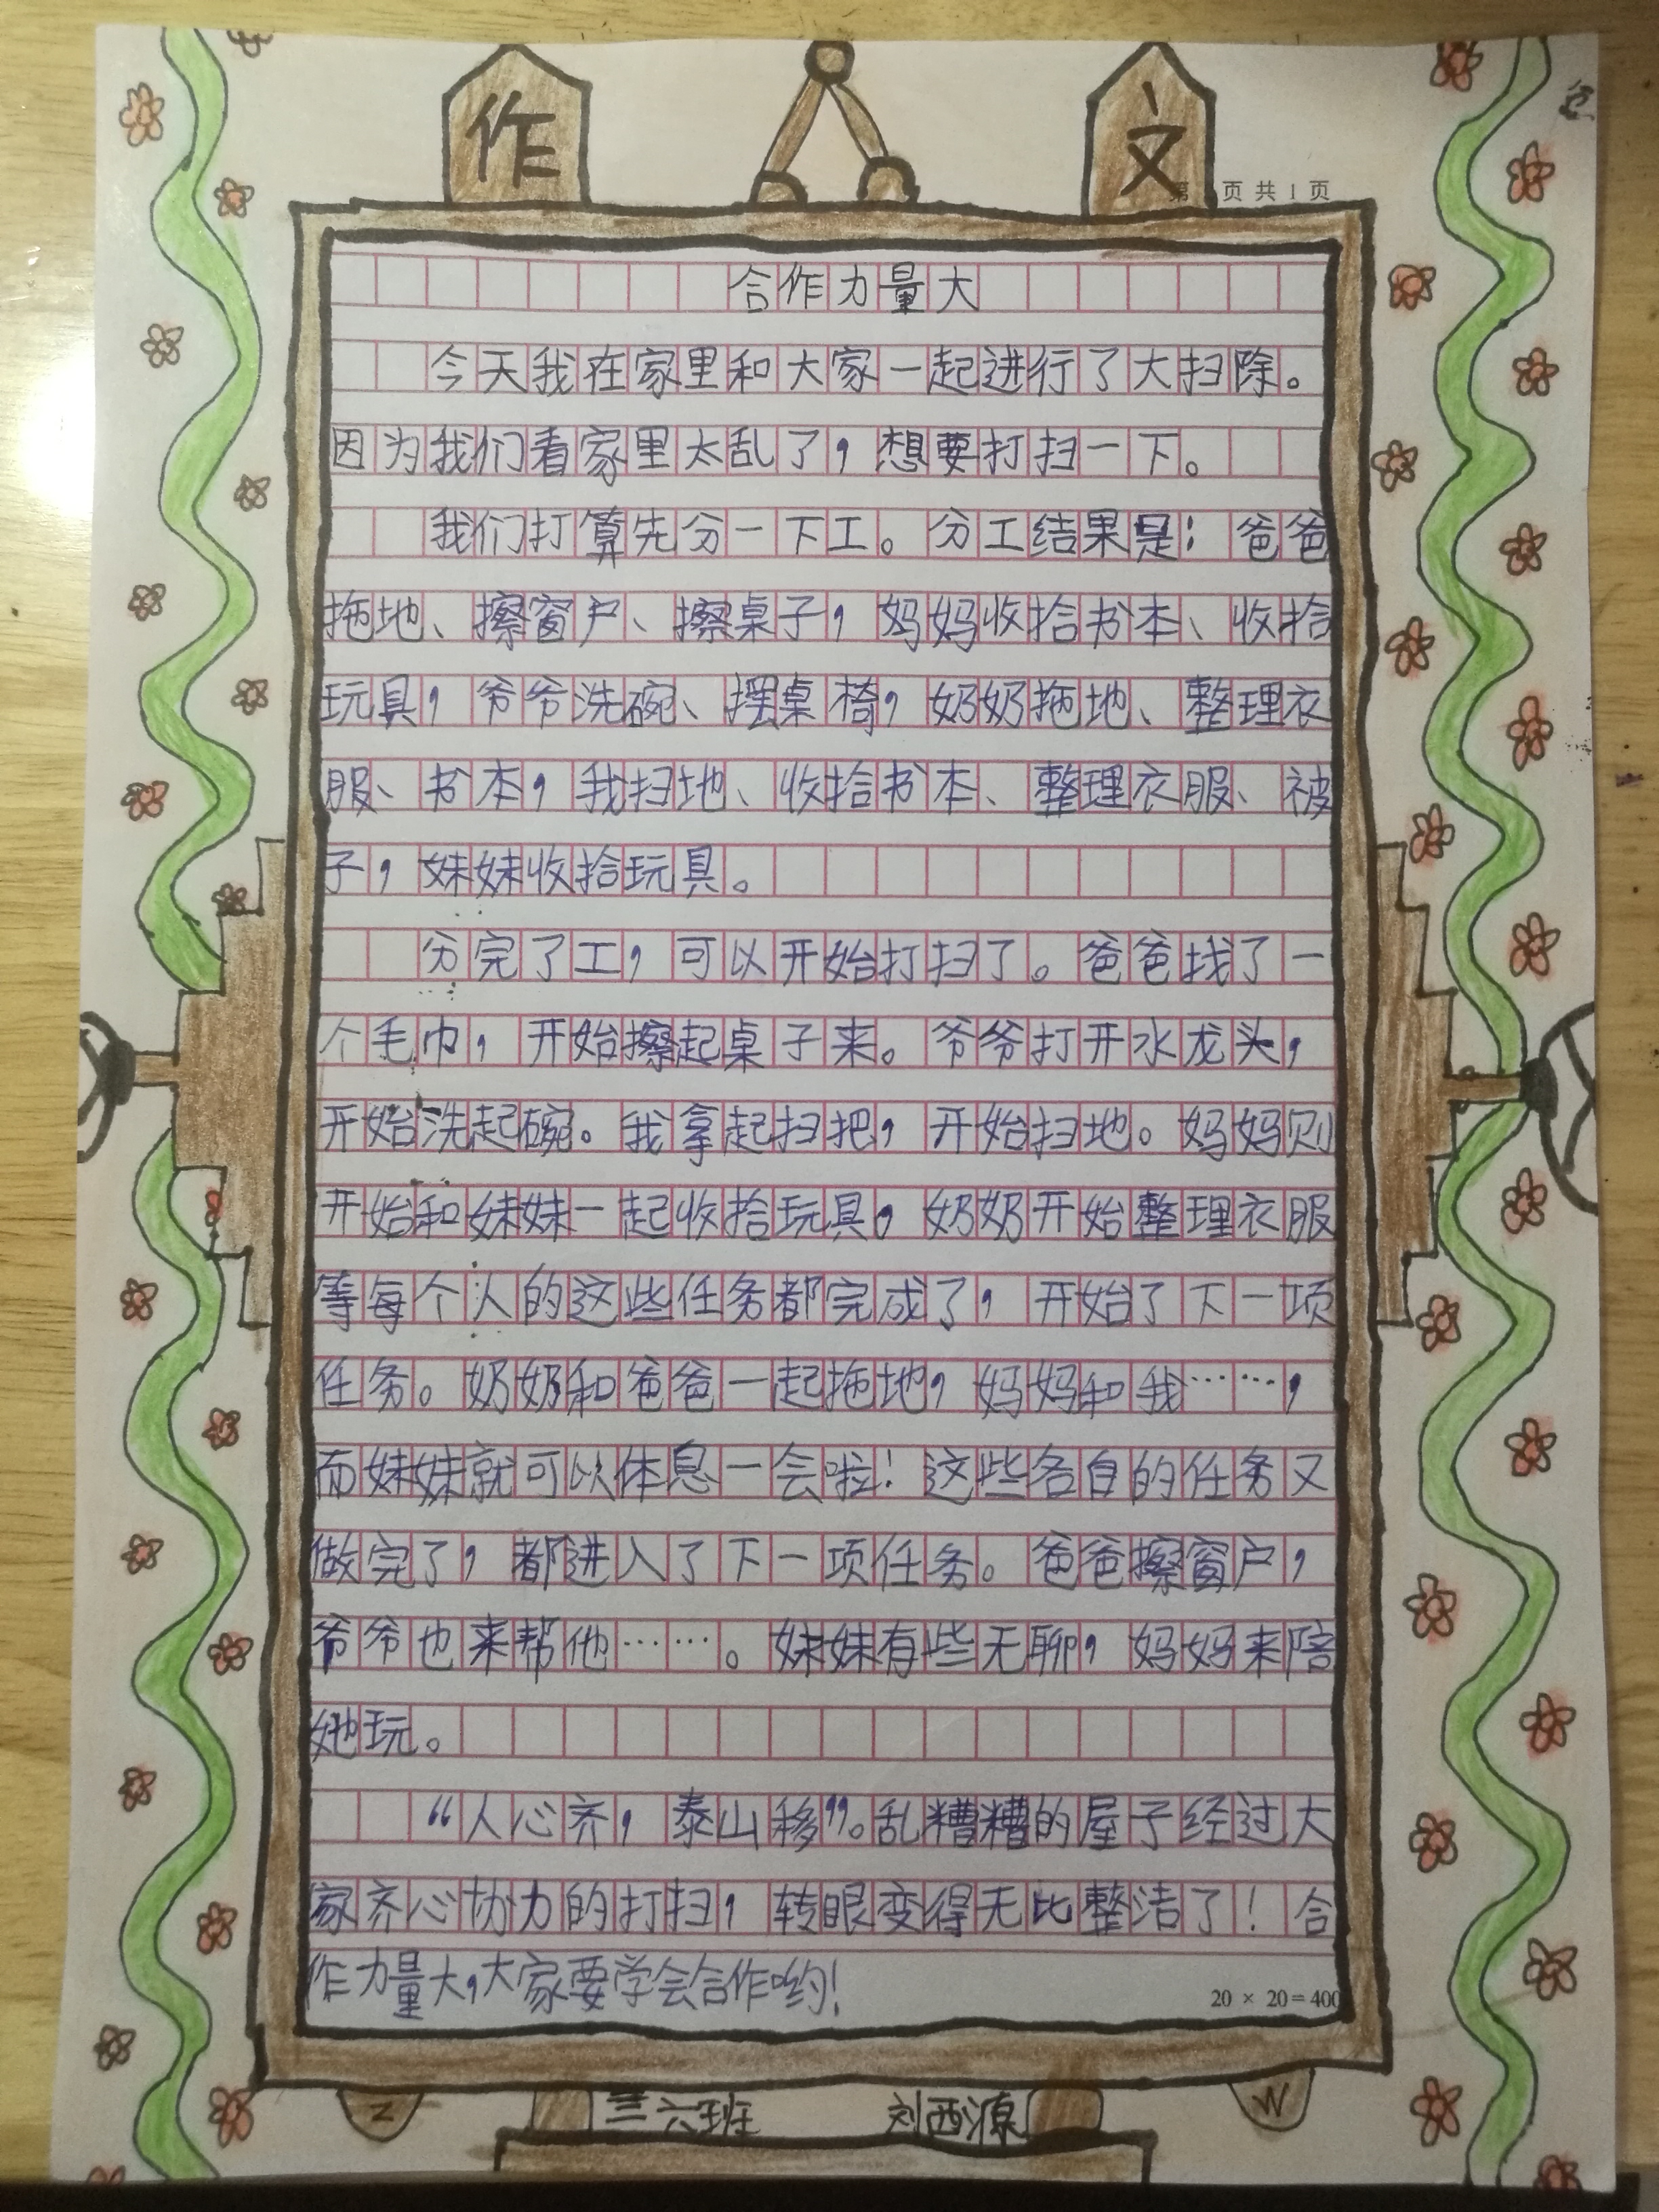 作 文
第 页 共 1 页
合作力量大
今天我在家里和大家一起进行了大扫除。
因为我们看家里太乱了，想要打扫一下。
我们打算先分一下工。分工结果是：爸爸
拖地、擦窗户、擦桌子，妈妈收拾书本、收拾
玩具，爷爷洗碗、摆桌椅，奶奶拖地、整理衣
服、书本，我扫地、收拾书本、整理衣服、被
子，妹妹收拾玩具。
分完了工，可以开始打扫了。爸爸找了一
个毛巾，开始擦起桌子来。爷爷打开水龙头，
开始洗起碗。我拿起扫把，开始扫地。妈妈则
开始和妹妹一起收拾玩具，奶奶开始整理衣服
等每个人的这些任务都完成了，开始了下一项
任务。奶奶和爸爸一起拖地，妈妈和我……，
而妹妹就可以休息一会啦！这些各自的任务又
做完了，都进入了下一项任务。爸爸擦窗户，
爷爷也来帮他……。妹妹有些无聊，妈妈来陪
她玩。
“人心齐，泰山移”。乱糟糟的屋子经过大
家齐心协力的打扫，转眼变得无比整洁了！合
作力量大，大家要学会合作哟！
20 × 20=400
Z 三六班 刘西源 W